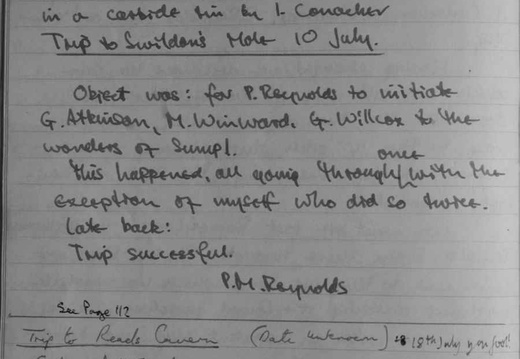 in a carbide tin by I. Conacher
Trip to Swildon's Hole 10 July.
Object was: for P. Reynolds to initiate
G. Atkinson, M. Winward, G. Willcox to the
wonders of Sump 1.
once
This happened, all going through, with the
exception of myself who did so twice.
Late back:
Trip successful.
P.M. Reynolds
See Page 112
Trip to Reads Cavern (Date unknown) 18th July you fool!